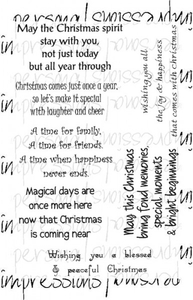 May the Christmas spirit
stay with you,
not just today
but all year through
Christmas comes just once a year,
so let's make it special
with laughter and cheer
A time for family.
A time for friends.
A time when happiness
never ends.
Magical days are
once more here
now that Christmas
is coming near
Wishing you all
the joy & happiness
that comes with christmas
May this Christmas
bring fond memories,
special moments
& bright beginnings
Wishing you a blessed
& peaceful Christmas